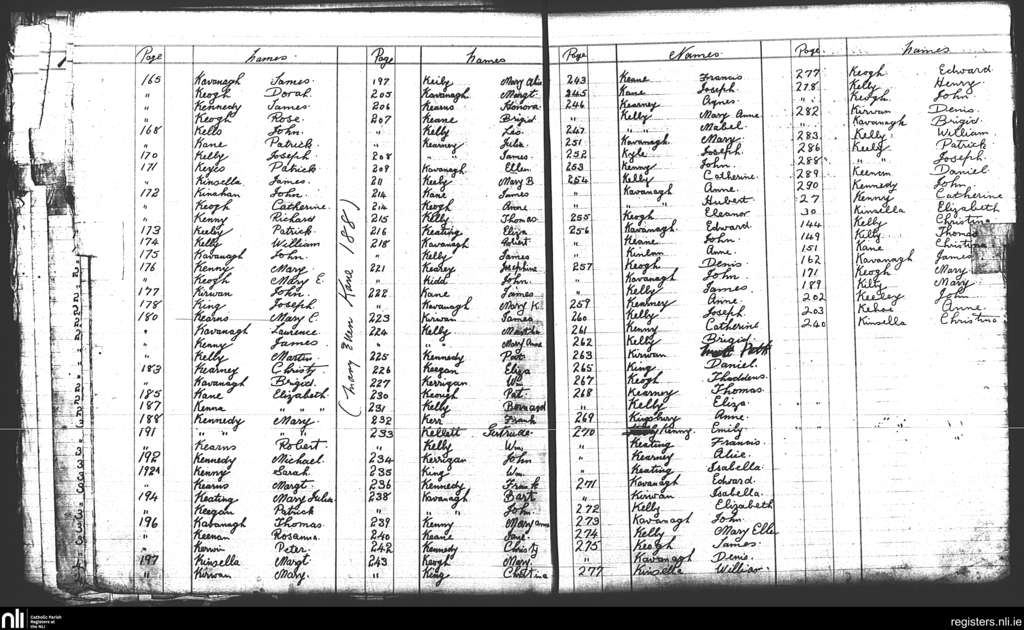 Page Names Page Names
165 Kavanagh James
" Keogh Dorah
" Kennedy James
" Keogh Rose
168 Kells John
" Kane Patrick
170 Kelly Joseph
171 Keyes Patrick
" Kinsella James
172 Kinahan John
" Keogh Catherine
" Kenny Richard
173 Keeley Patrick
174 Kelly William
175 Kavanagh John
176 Kenny Mary
" Keogh Mary E.
177 Kirwan John
178 King Joseph
180 Kearns Mary C.
" Kavanagh Laurence
" Kenny James
" Kelly Martin
183 Kearney Christy
" Kavanagh Brigid
185 Kane Elizabeth
187 Kenna " " "
188 Kennedy Mary
191 " " "
" Kearns Robert
192 Kennedy Michael
192A Kenny Sarah
" Kearns Margt.
194 Keating Mary Julia
" Keegan Patrick
196 Kabanagh Thomas
" Keenan Rosanna
" Kerwin Peter
197 Kinsella Margt.
" Kirwan Mary
(Mary Ellen Kane 188)
197 Keily Mary
205 Kavanagh Margt.
206 Kearns Honora
207 Keane Brigid
" Kelly Leo
" Kearney Julia
208 " " James
209 Kavanagh Ellen
211 Keely Mary B
214 Kane James
214 Keogh Anne
215 Kelly Thomas
216 Keating Eliza
218 Kavanagh Robert
" Kelly James
221 Kearey Josephine
" Kidd John
222 Kane James
" Kavanagh Mary K.
223 Kirwan James
224 Kelly Martha
" " " Mary Anne
225 Kennedy Pat
226 Keegan Eliza
227 Kerrigan Wm
230 Keough Pat.
231 Kelly Bernard
232 Kerr Frank
233 Kellett Gertrude
" Kelly Wm.
234 Kerrigan John
235 King Wm.
236 Kennedy Frank
238 Kavanagh Bart
" " " John
239 Kenny Mary Anne
240 Keane Jane
242 Kennedy Christy
243 Keogh Mary
" King Christina
Page Names Page Names
243 Keane Francis
245 Kane Joseph
246 Kearney Agnes
" Kelly Mary Anne
247 " " Mabel
251 Kavanagh Mary
252 Kyle Joseph
253 Kenny John
254 Kelly Catherine
" Kavanagh Anne
" " " Hubert
255 Keogh Eleanor
256 Kavanagh Edward
" Keane John
" Kinlan Anne
257 Keogh Denis
" Kavanagh John
" Kelly James
259 Kearney Anne
260 Kelly Joseph
261 Kenny Catherine
262 Kelly Brigid
263 Kirwan Patk
265 King Daniel
267 Keogh Thaddeus
268 Kearney Thomas
" Kelly Eliza
269 Kingsbury Anne
270 Kenny Emily
" Keating Francis
" Kearney Alice
" Keating Isabella
271 Kavanagh Edward
" Kirwan Isabella
272 Kelly Elizabeth
273 Kavanagh John
274 Kelly Mary Elle
275 Keogh James
" Kavanagh Denis
277 Kinsella William
277 Keogh Edward
278 Kelly Henry
" Keogh John
282 Kirwan Denis
" Kavanagh Brigid
283 Kelly William
286 Keely Patrick
288 " " Joseph
289 Keenan Daniel
290 Kennedy John
27 Kenny Catherine
30 Kinsella Elizabeth
144 Kelly Christina
149 Kelly Thomas
151 Kane Christina
162 Kavanagh James
171 Keogh Mary
189 Kelly Mary
202 Keeley John
203 Kehoe Anne
240 Kinsella Christina
nli Catholic Parish Registers at the NLI
registers.nli.ie